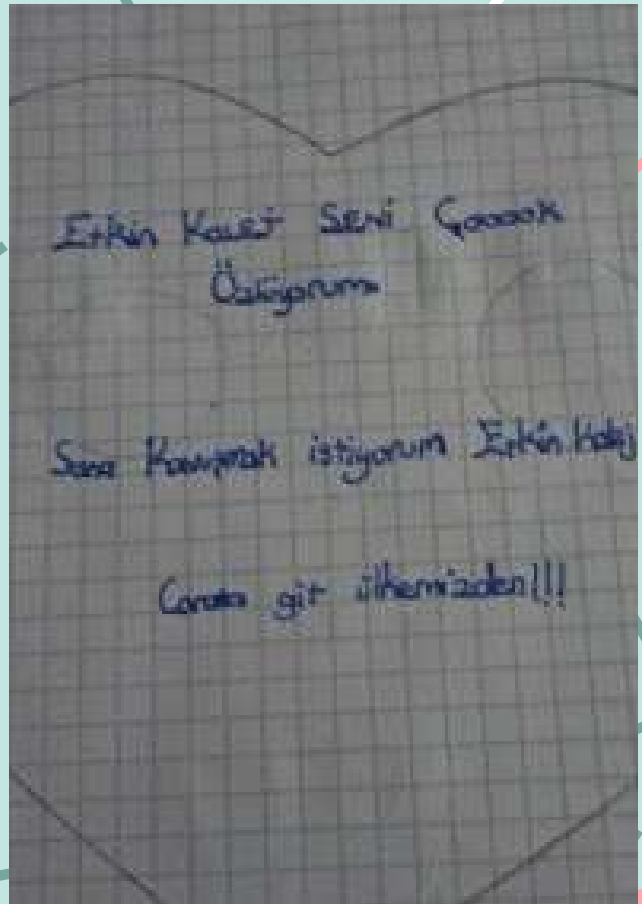 Erkin Kolej Seni Çooook
Özlüyorum
Sana Kavuşmak istiyorum Erkin Kolej
Corona git ülkemizden!!!